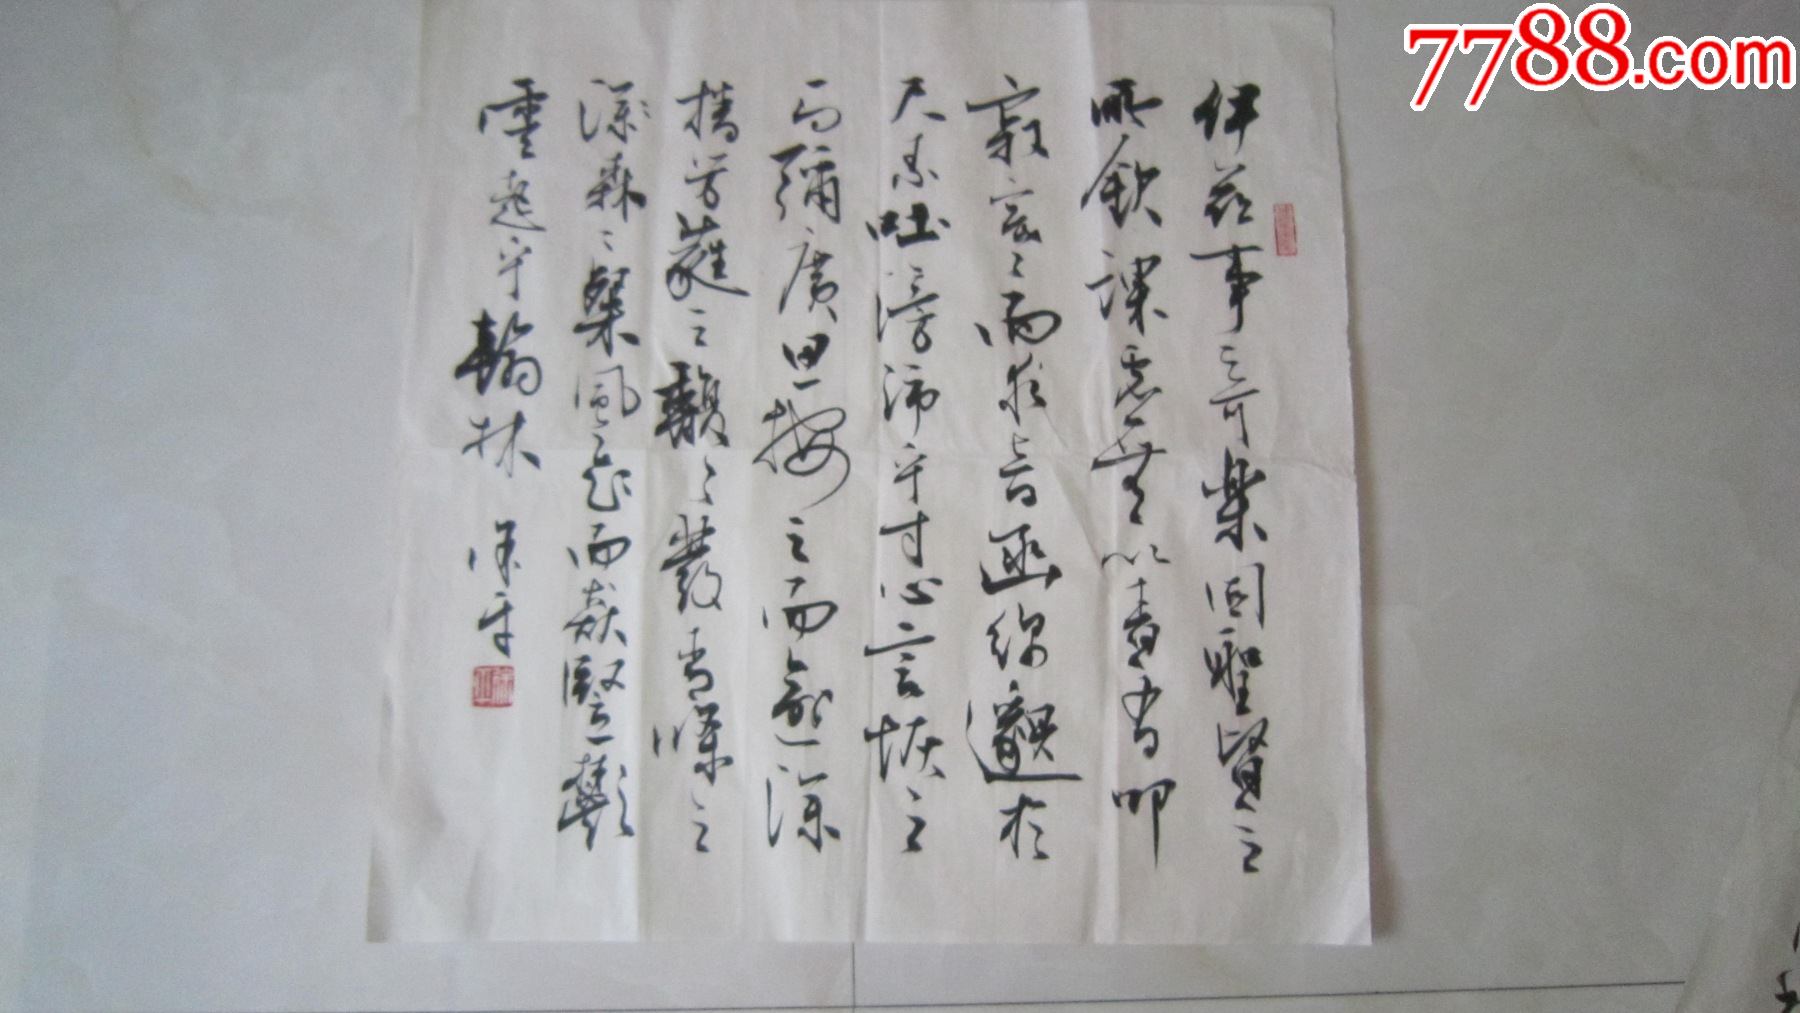 7788.com
伊茲事之可樂固聖賢之
所欽課虛無以責有叩
寂寞々而求音函綿邈於
尺素吐滂沛乎寸心言恢之
而彌廣思按之而逾深
播芳蕤之馥々發青條之
森々粲風飛而猋豎鬱
雲起乎翰林